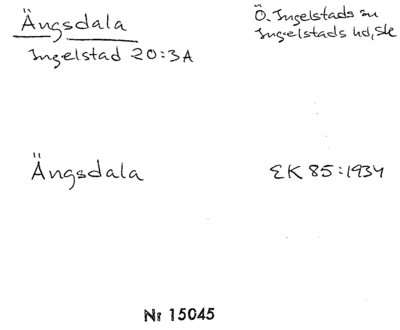 Ängsdala
Ö. Ingelstads sn
Ingelstads hd, Sk
Ingelstad 20:3A
Ängsdala
EK 85:1934
Nr 15045